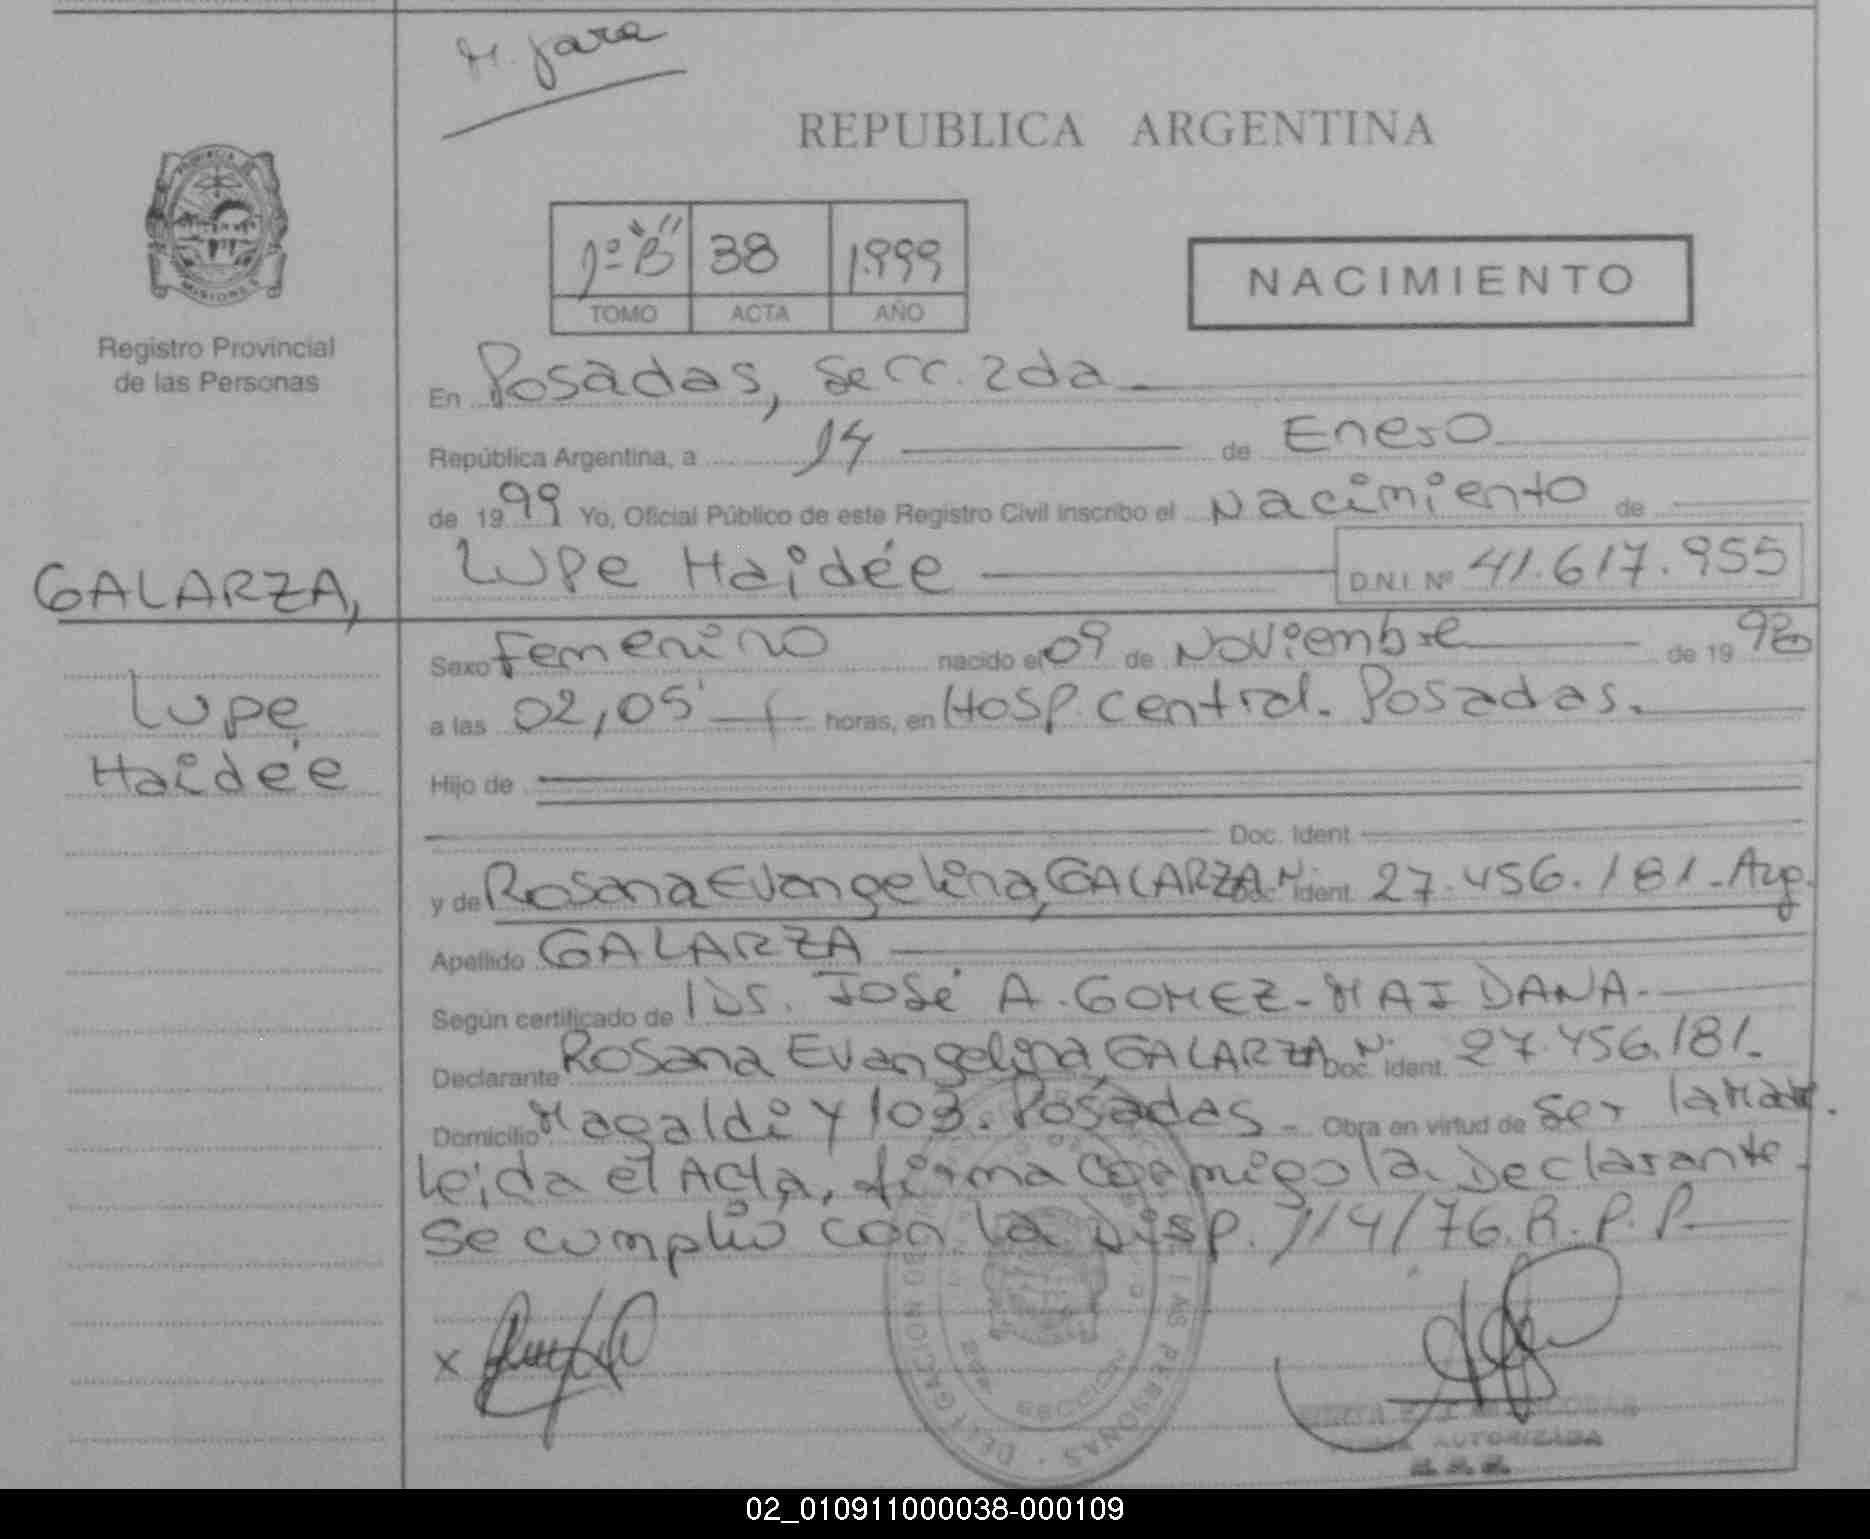 M. Jara
REPUBLICA ARGENTINA
1º "B" 38 1.999
TOMO ACTA AÑO
NACIMIENTO
PROVINCIA DE
MISIONES
Registro Provincial
de las Personas
En Posadas, Secc. 2da
República Argentina, a 14 de Enero
de 1999 Yo, Oficial Público de este Registro Civil inscribo el Nacimiento de
Lupe Haidée D.N.I. Nº 41.617.955
GALARZA,
Lupe
Haidée
Sexo Femenino nacido el 09 de Noviembre de 1998
a las 02,05' horas, en Hosp. Central. Posadas.
Hijo de
Doc. Ident.
y de Rosana Evangelina, GALARZA Doc. Ident. N: 27.456.181-Arg.
Apellido GALARZA
Según certificado de Ds. José A. GOMEZ-MAIDANA-
Declarante Rosana Evangelina, GALARZA Doc. Ident. N: 27.456.181.
Domicilio Magaldi y 103. Posadas. Obra en virtud de Ser la Madre.
Leida el Acta, firma conmigo la Declarante.
Se cumplió con la Disp. 114/76.R.P.P.
DELEGACION
LAS PERSONAS
SECCION
X
AUTORIZADA
02_010911000038-000109